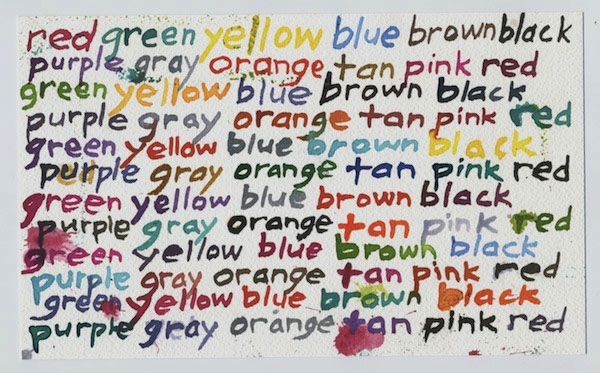 red green yellow blue brown black
purple gray orange tan pink red
green yellow blue brown black
purple gray orange tan pink red
green yellow blue brown black
purple gray orange tan pink red
green yellow blue brown black
purple gray orange tan pink red
green yellow blue brown black
purple gray orange tan pink red
green yellow blue brown black
purple gray orange tan pink red